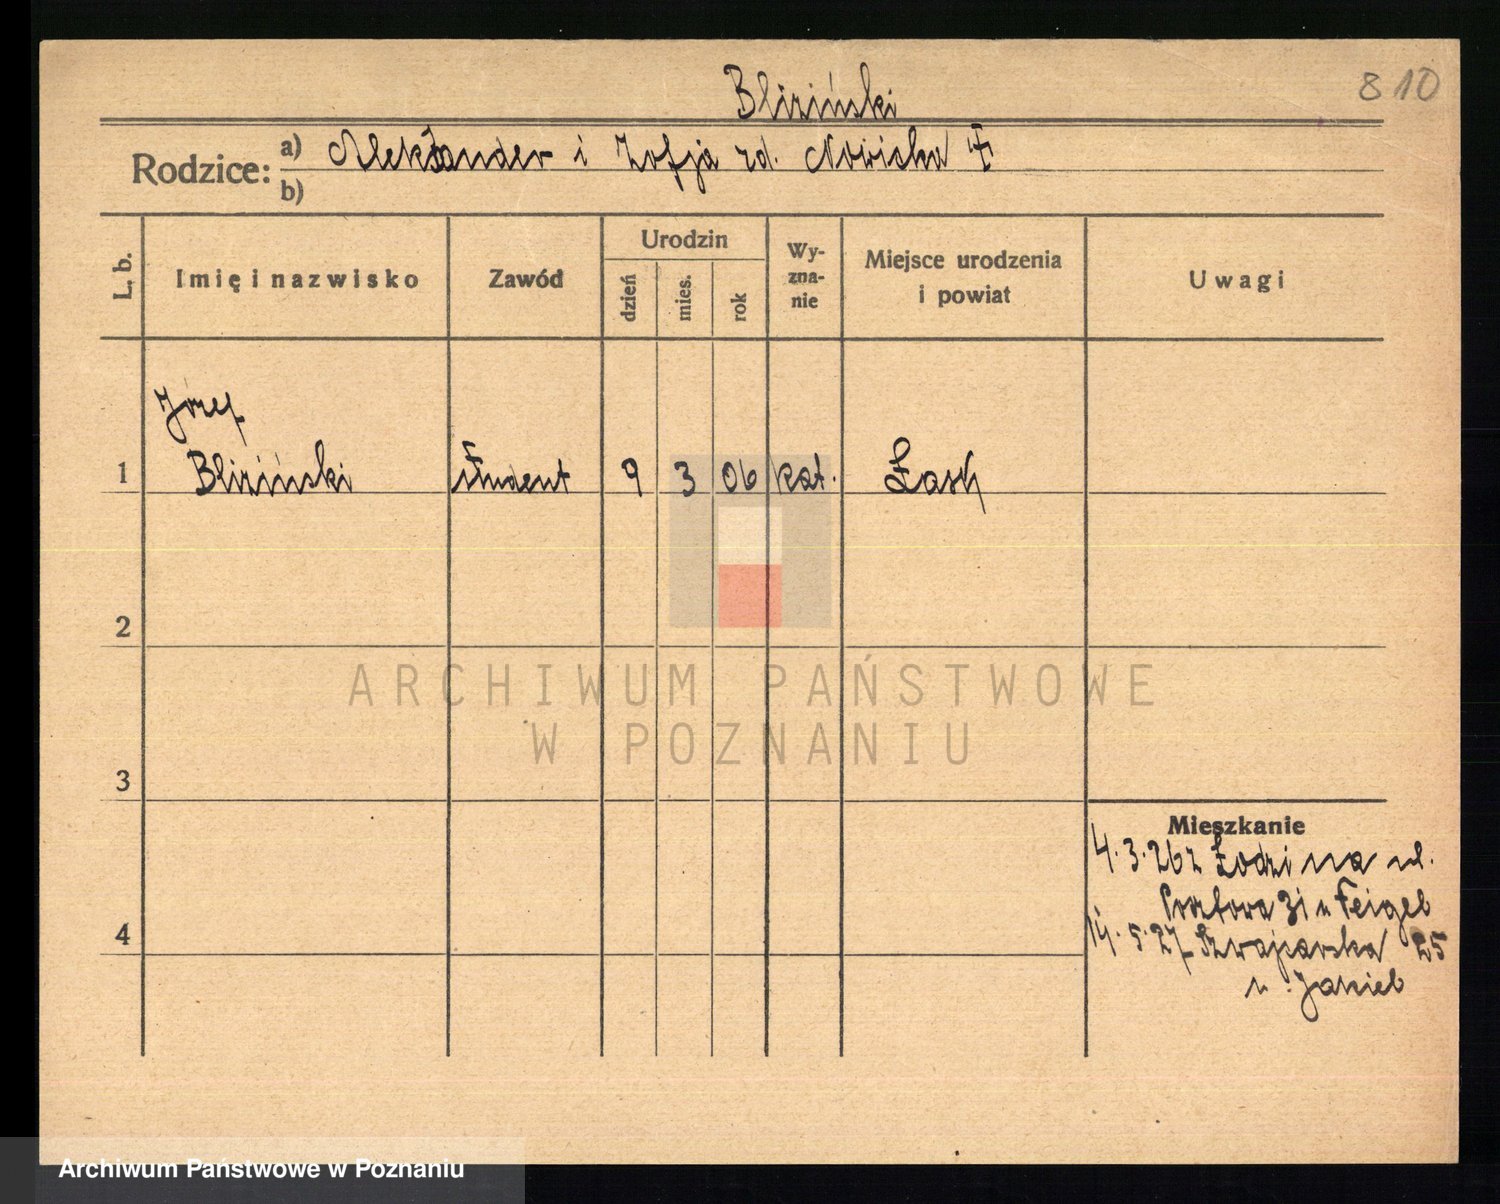 Bliziński
8 10
Rodzice: a) Aleksander i Zofja zd. Nowicka
b)
L. b.
Imię i nazwisko
Zawód
Urodzin
dzień
mies.
rok
Wy-
zna-
nie
Miejsce urodzenia
i powiat
Uwagi
Józef
1 Bliziński student 9 3 06 kat. Łask
2
3
4
Mieszkanie
4.3.26 z Łodzi na ul.
31 u Feigel
14.5.27 Szwajcarska 25
u
ARCHIWUM PAŃSTWOWE
W POZNANIU
Archiwum Państwowe w Poznaniu